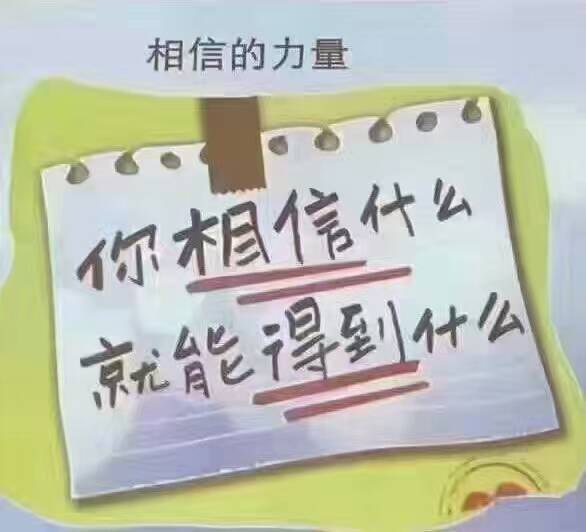 相信的力量
你相信什么
就能得到什么